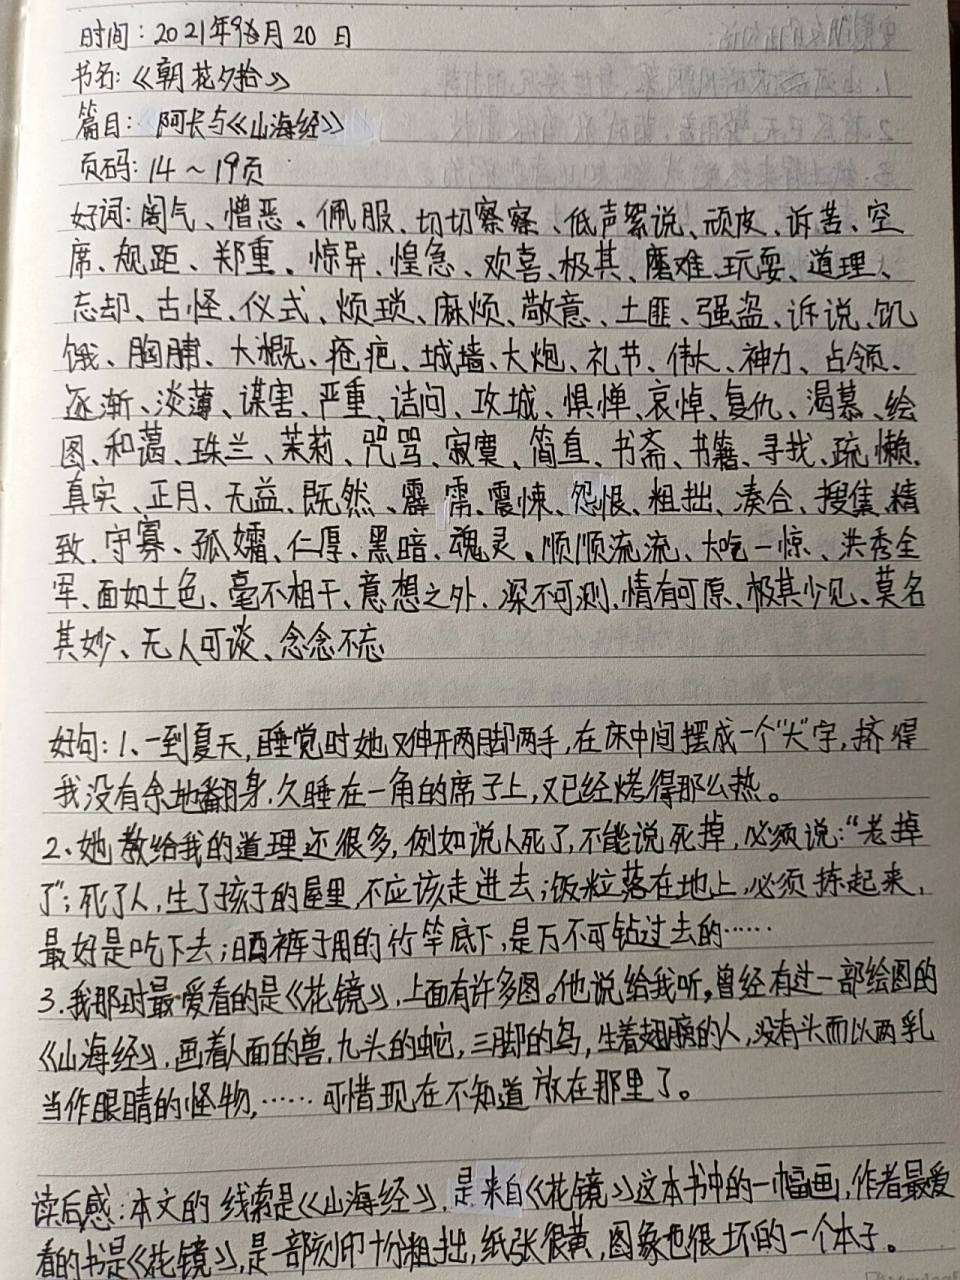 时间：2021年9月20日
书名：《朝花夕拾》
篇目：阿长与《山海经》
页码：14～19页
好词：阔气、憎恶、佩服、切切察察、低声絮说、顽皮、诉苦、空
席、规距、郑重、惊异、惶急、欢喜、极其、磨难、玩耍、道理、
忘却、古怪、仪式、烦琐、麻烦、敬意、土匪、强盗、诉说、饥
饿、胸脯、大概、疮疤、城墙、大炮、礼节、伟大、神力、占领、
逐渐、淡薄、谋害、严重、诘问、攻城、惧惮、哀悼、复仇、渴慕、绘
图、和蔼、珠兰、茉莉、咒骂、寂寞、简直、书斋、书籍、寻找、疏懒、
真实、正月、无益、既然、霹雳、震悚、怨恨、粗拙、凑合、搜集、精
致、守寡、孤孀、仁厚、黑暗、魂灵、顺顺流流、大吃一惊、洪秀全
军、面如土色、毫不相干、意想之外、深不可测、情有可原、极其少见、莫名
其妙、无人可谈、念念不忘
好句：1、一到夏天，睡觉时她又伸开两脚两手，在床中间摆成一个“大”字，挤得
我没有余地翻身，久睡在一角的席子上，又已经烤得那么热。
2、她教给我的道理还很多，例如说人死了，不能说死掉，必须说：“老掉
了”；死了人，生了孩子的屋里，不应该走进去；饭粒落在地上，必须拣起来，
最好是吃下去；晒裤子用的竹竿底下，是万不可钻过去的……
3.我那时最爱看的是《花镜》，上面有许多图。他说给我听，曾经有过一部绘图的
《山海经》，画着人面的兽，九头的蛇，三脚的鸟，生着翅膀的人，没有头而以两乳
当作眼睛的怪物，……可惜现在不知道放在那里了。
读后感：本文的线索是《山海经》，是来自《花镜》这本书中的一幅画，作者最爱
看的书是《花镜》，是一部刻印十分粗拙，纸张很黄，图象也很坏的一个本子。